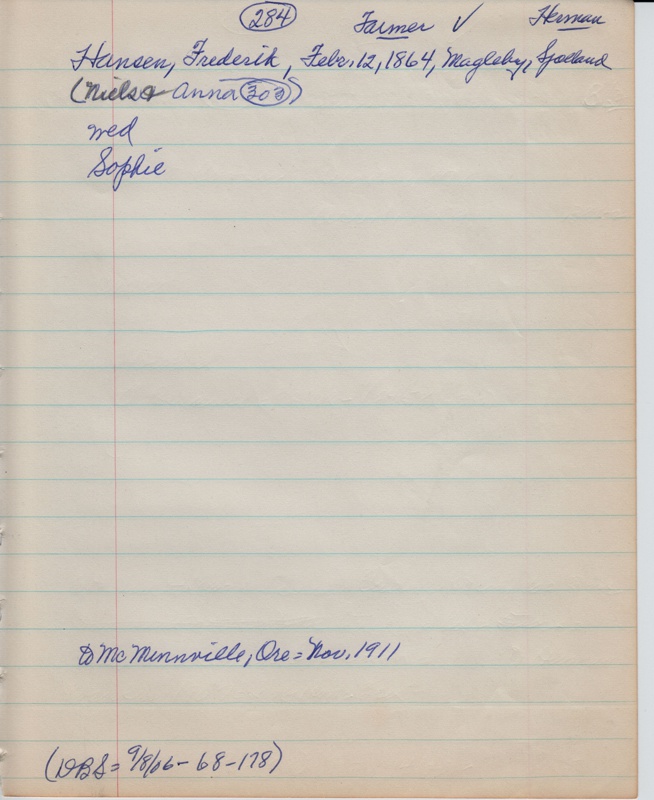 284 Farmer ✓ Herman
Hansen, Frederik, Febr. 12, 1864, Magleby, Sjoelland
(Niels & Anna 303)
wed
Sophie
to Mc Minnville, Ore = Nov. 1911
(DBS = 9/8/06 - 68-178)